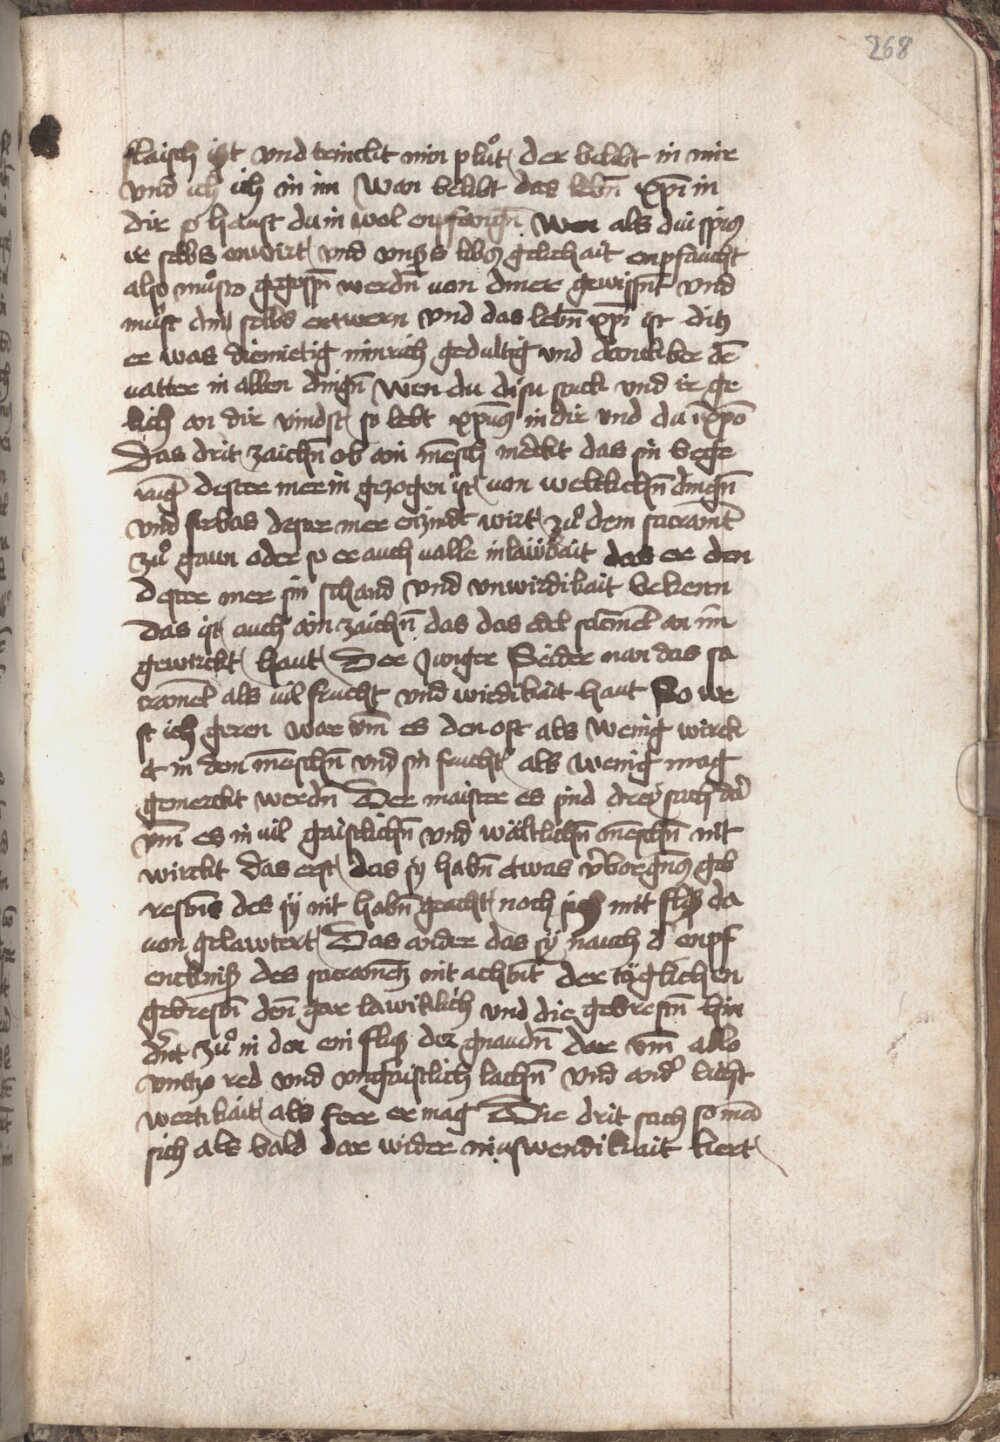 268
flaisch ist vnd trinckt min pluͦt der belibt in mir
vnd ich in im Wan belibt das lebn̄ xp̄i in
dir so haust du in wol enpfangn̄ Wen als diu spis
ir selbs enwirt vnd vnsers libs gelichait enpfaucht
also muͦsto gegessn̄ werdn̄ von diner gewissn̄t vnd
muͦst dins selbs entwern vnd das lebn̄ xp̄i ist ditz
er was diemietig minrich gedultig vnd danckber dē
vatter in allen dingn̄ Wen du disu stuck vnd ir ge
lich an dir vindst so lebt xp̄us in dir vnd du ī xp̄o
Das drit zaichn̄ ob ain mēsch merckt das sin bege
rūg dester mer in gezogen ist von weltlichn̄ dingn̄
vnd fürbas dester mer enzindt wirt zuͦ dem sacramēt
zuͦ gaun oder so er auch valle in lawkait das er den
dester mer sin schand vnd vnwirdikait bekenn
Das ist auch ain zaichn̄ das das edel sacramēt an im
gewirckt haut Der Junger Seider nun das sa
cramēt als vil frucht vnd wirdikait haut So we
st ich geren war vm̄ es den oft als wenig wirck
et in den mēnschn̄ vnd sin frucht als wenig mag
gemerckt werdn̄ Der maister es sind drey sach dar
vm̄ es in vil gaistlichn̄ vnd wältlichn̄ mēschn̄ nit
wirckt das erst das sy habn̄ etwas v̄borgn̄s geb
restn̄s des sy nit habn̄ geacht noch sich mit flis da
von gelawtert Das ander das sy nauch d̄ enpf
encknis des sacramētz nit achtnt der täglichen
gebrestn̄ den gar lawiklich vnd die gebrestn̄ hin
dn̄t zuͦ in den ein flus der gnaudn̄ dar vm̄ allo
vnttz red vnd vngaistlich lachn̄ vnd and̄ licht
wertikait als feer er mag Die drit sach so mā
sich als bald dar wider in uswendikait kert